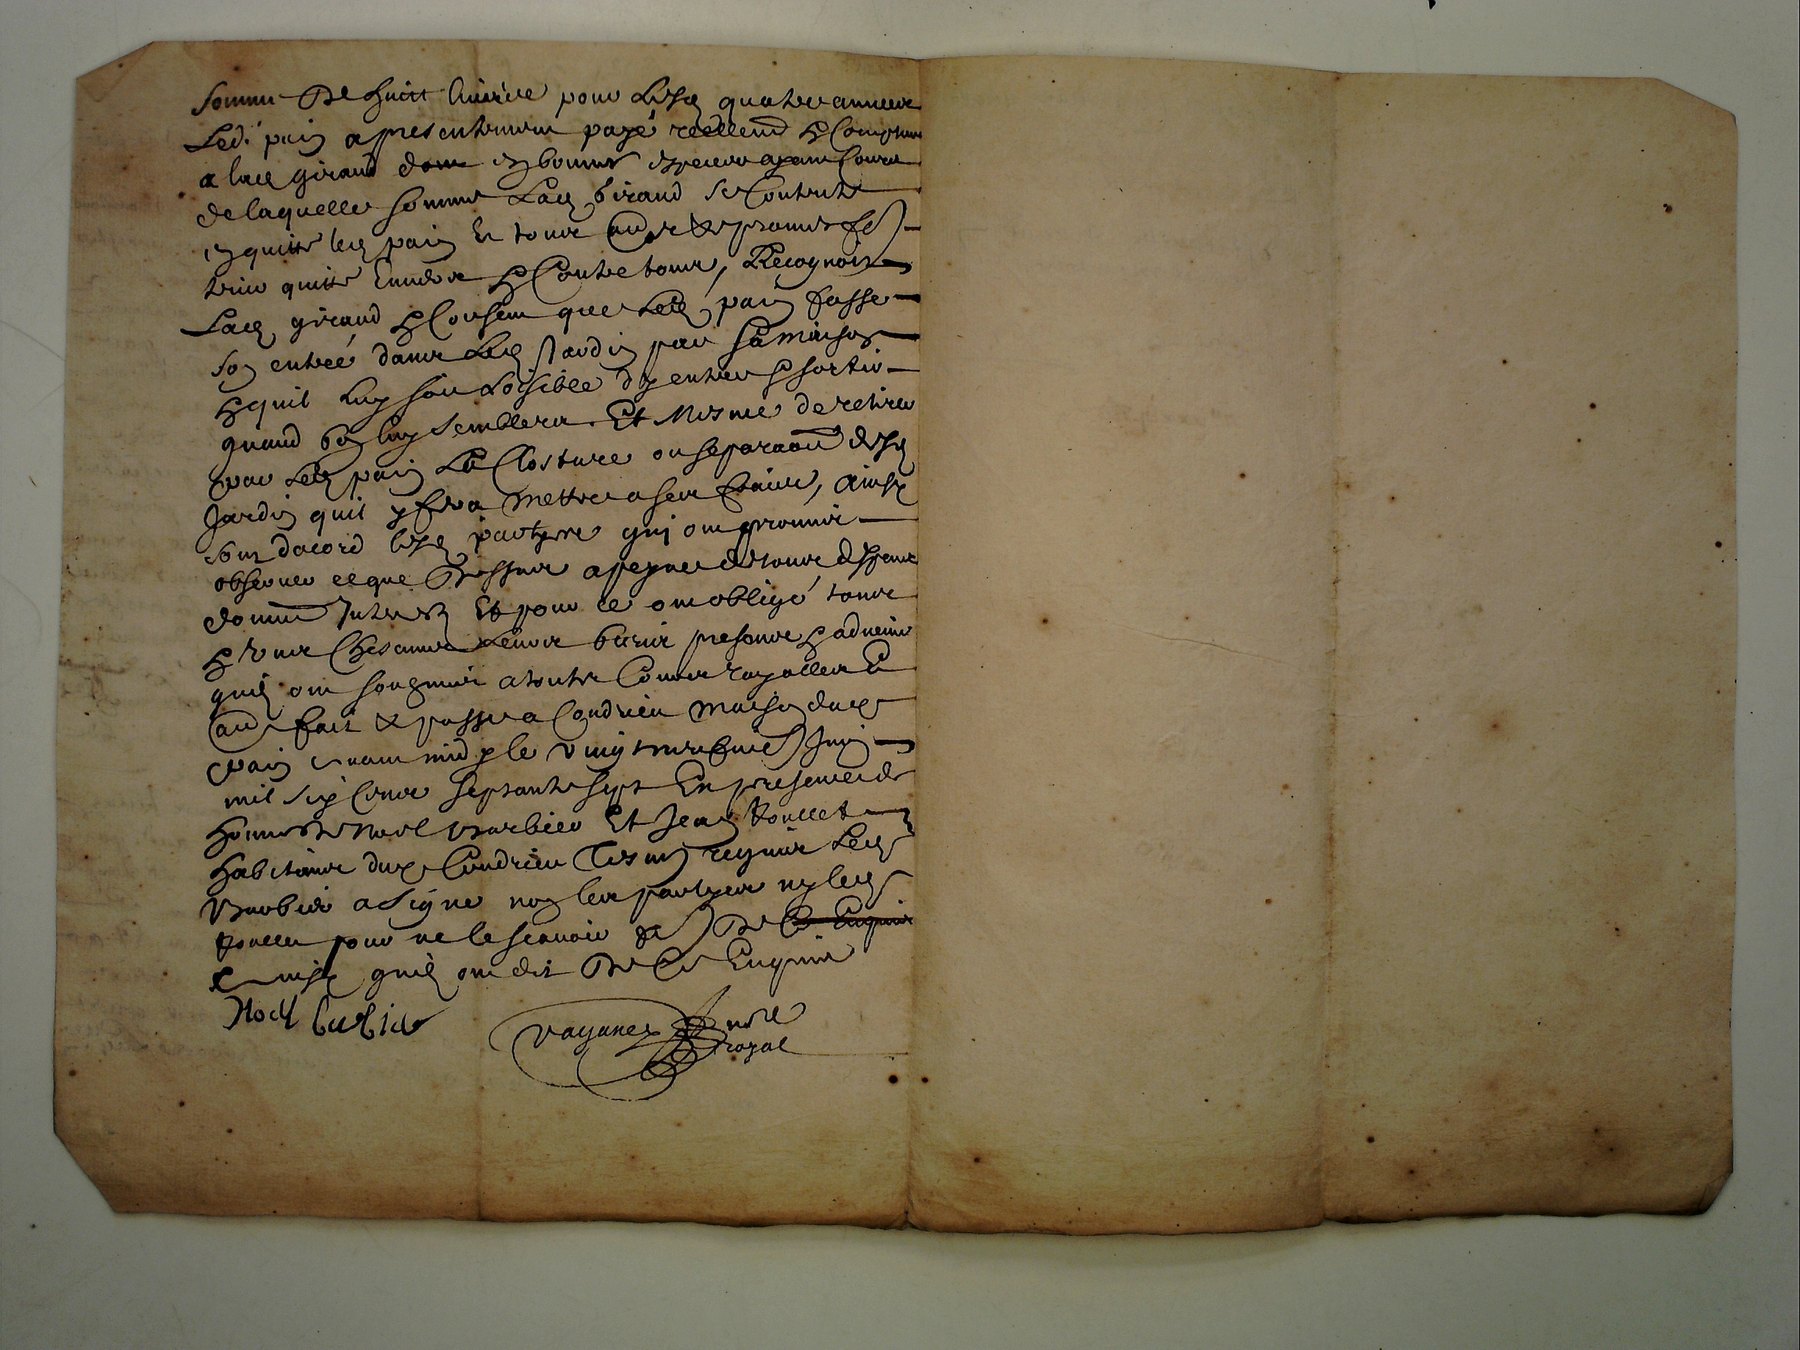 somme de huict livres pour lesd quatre annees
Ledt pain a presentement payé reellemt & comptant
a lad giraud dont en bonnes especes ayant cours
de laquelle somme Lad giraud se contente
en quitte led pain Et tous au et promet
tenir quitte Envers & contre tous, Recognoist
Lad giraud & consent que Led pain fasse
son entree dans Led Jardin par sa maison
& quil luy soit loisible dy entrer & sortir
quand bon luy semblera. Et Mesme de retirer
par Led pain La Closture ou separaon dud
Jardin quil y fera mettre a ses fraix, Ainsy
sont dacord lesd partyes qui ont promis
observer ce que dessus a peyne de tous despens
domm Interestz Et pour ce ont obligé tous
& uns chescungs leurs biens presents & advenir
quilz ont soubzmis a toutes Cours royalles &
au fait & passe a Condrieu maison dud
pain avant midy le vingt neufvie Juin
mil six cents septante sept En presence de
honneste Noel Barbier Et Jean Poncet
habitants dud Condrieu tesmoings requis Led
Barbier a signe non les partyes ny led
poncet pour ne le scavoir de ce Enquis
ainsy quilz ont dit De Ce Enquis
Noel barbier
vaganey nore
royal